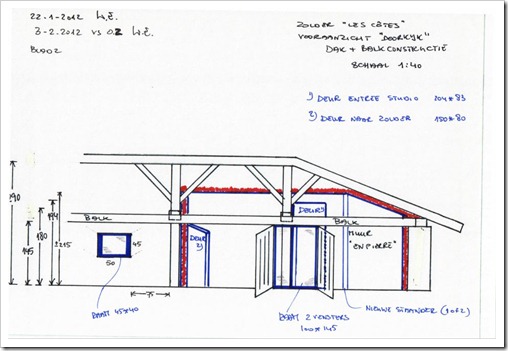 22-1-2012 W.É.
3-2-2012 vs 02 W.É.
BLAD 2
ZOLDER "LES CÔTES"
VOORAANZICHT "DOORKIJK"
DAK + BALKCONSTRUCTIE
SCHAAL 1:40
1) DEUR ENTREE STUDIO 204*83
2) DEUR NAAR ZOLDER 150*80
290
145
180
194
±215
BALK
DEUR 1
BALK
MUUR
"EN PIERRE"
DEUR
2)
45
50
75
RAAM 45*40
RAAM 2 VENSTERS
100*145
NIEUWE STAANDER (1 OF 2)